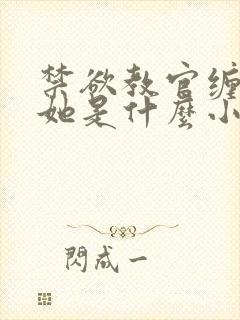 禁欲教官缠
她是什麼小
閃成一